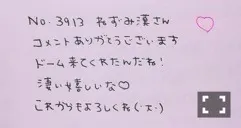 No. 3913 ねずみ漢さん
コメントありがとうございます
ドーム来てくれたんだね!
凄い嬉しいな♡
これからもよろしくね(·ェ·)